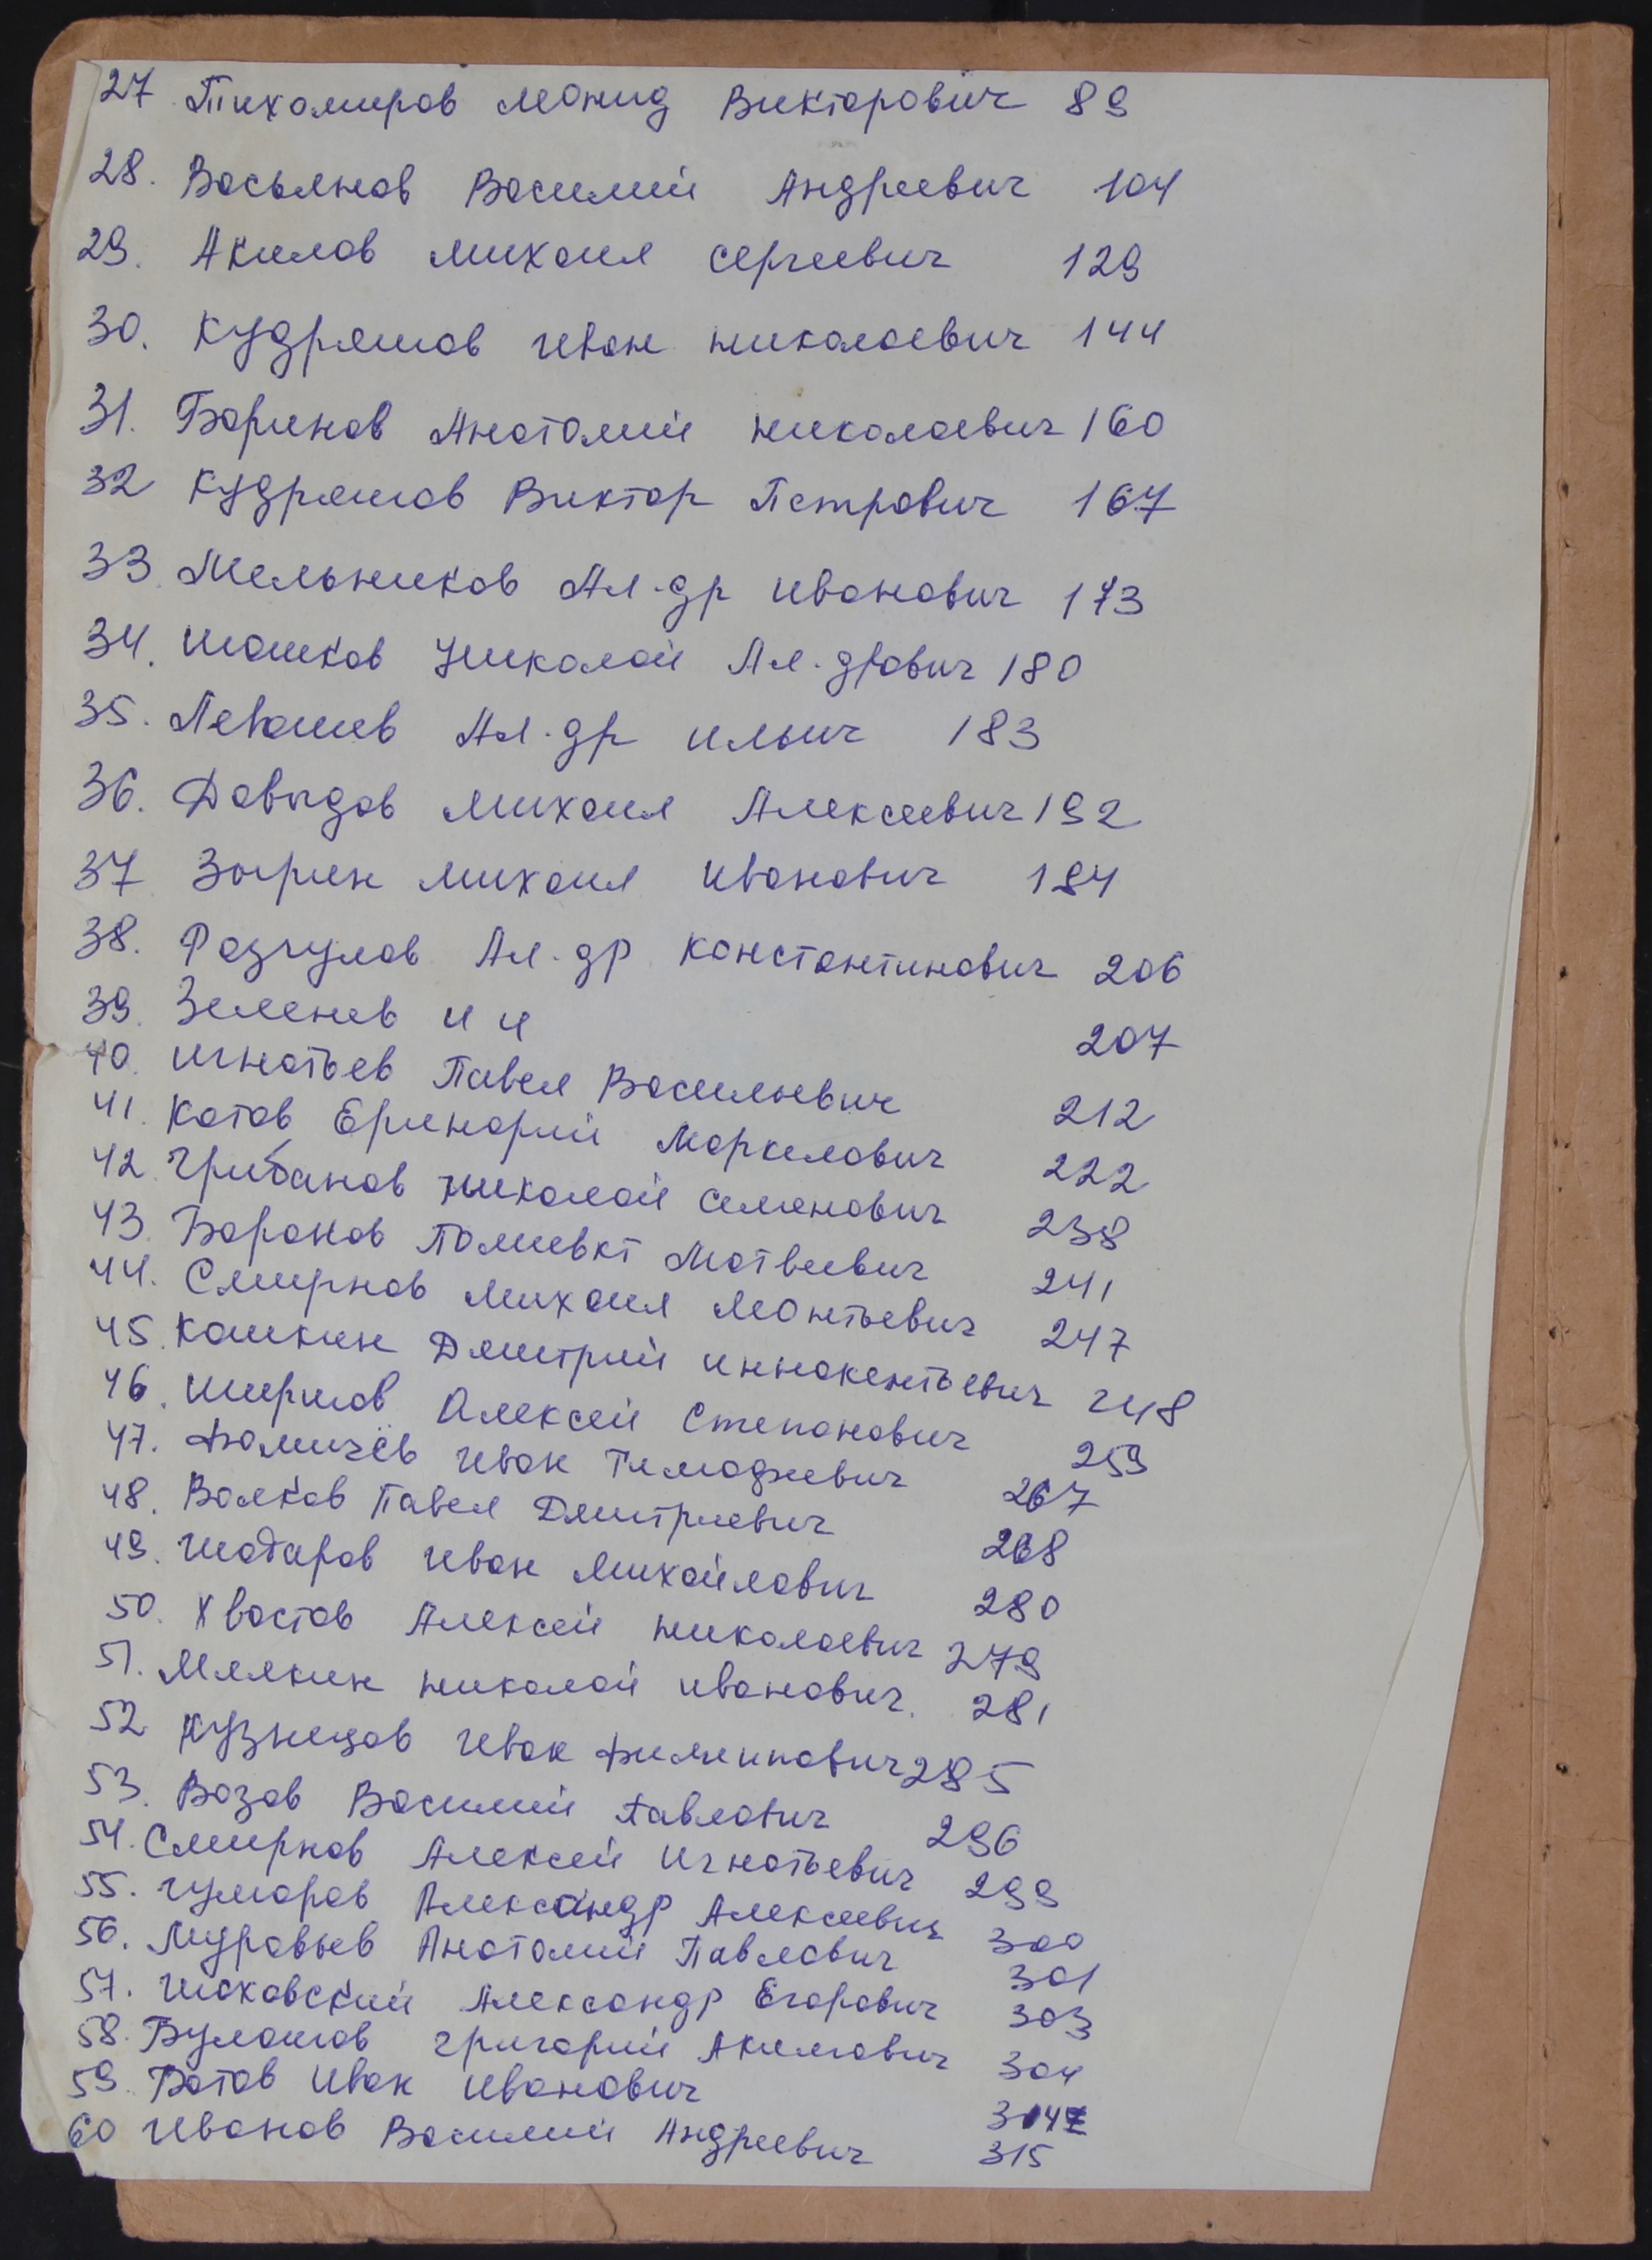 27 Тихомиров Леонид Викторович 89
28. Васьянов Василий Андреевич 104
29. Акилов Михаил Сергеевич 129
30. Кудряшов Иван Николаевич 144
31. Баринов Анатолий Николаевич 160
32 Кудряшов Виктор Петрович 167
33. Мельников Ал-др Иванович 173
34. Шашков Николай Ал-дрович 180
35. Левашев Ал-др Ильич 183
36. Давыдов Михаил Алексеевич 192
37 Зырин Михаил Иванович 194
38. Разгулов Ал-др Константинович 206
39. Зеленев И И 207
40. Игнатьев Павел Васильевич 212
41. Котов Еринарий Маркелович 222
42. Грибанов Николай Семенович 238
43. Баранов Полиевкт Матвеевич 241
44. Смирнов Михаил Леонтьевич 247
45. Кашкин Дмитрий Иннокентьевич 248
46. Ширшов Алексей Степанович 259
47. Фомичёв Иван 267
48. Волков Павел Дмитриевич 268
49. Шадаров Иван Михайлович 280
50. Хвостов Алексей Николаевич 279
51. Мялкин Николай Иванович. 281
52 Кузнецов Иван Филиппович 285
53. Возов Василий Павлович 296
54. Смирнов Алексей Игнатьевич 299
55. Гумаров Александр Алексеевич 300
56. Муравьев Анатолий Павлович 301
57. Шаховский Александр Егорович 303
58. Булашов Григорий Акимович 304
59. Батов Иван Иванович
60 Иванов Василий Андреевич 315